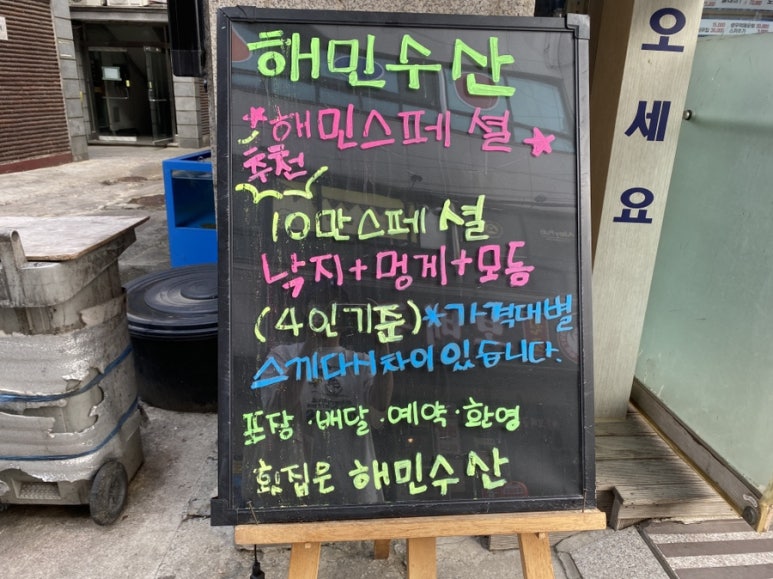 해민수산
*해민스페셜*
추천
10만스페셜
낙지+멍게+모듬
(4인기준)*가격대별
스끼다시차이있습니다.
포장·배달·예약·환영
횟집은 해민수산
오세요